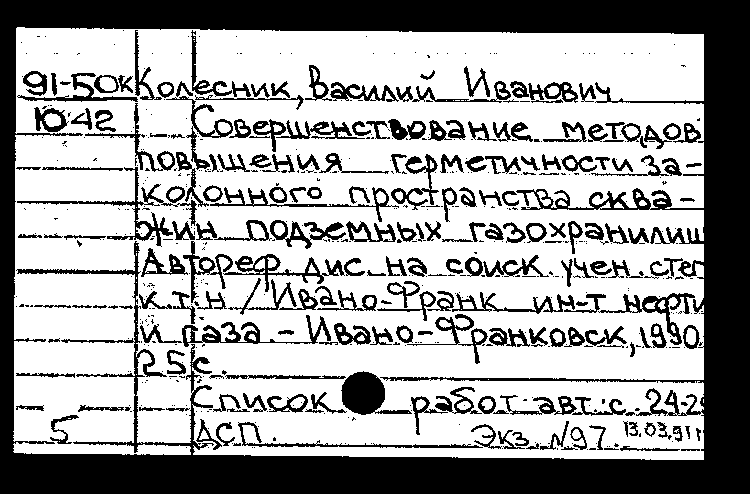 91-50к Колесник, Василий Иванович.
1042 Совершенствование методов
повышения герметичности за-
колонного пространства сква-
жин подземных газохранилищ
Автореф. дис. на соиск. учен. степ
к.т.н / Ивано-Франк. ин-т нефти
и газа. - Ивано-Франковск, 1990
25 с.
Список работ авт.: с. 24-25
5 ДСП. Экз. N97 13.03.91г